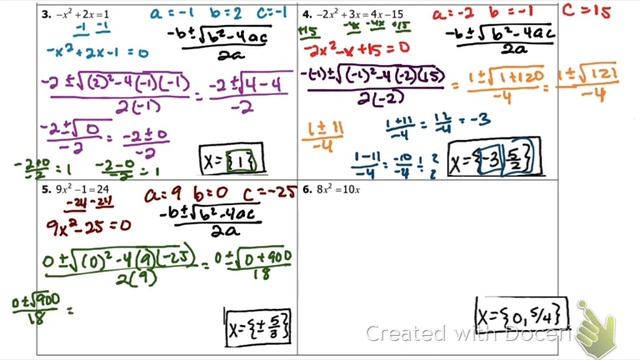 3. -x² + 2x = 1
a = -1 b = 2 c = -1
-1 -1
-x² + 2x - 1 = 0
-b ± √b² - 4ac / 2a
-2 ± √(2)² - 4(-1)(-1) / 2(-1) = -2 ± √4 - 4 / -2
-2 ± √0 / -2 = -2 ± 0 / -2
-2 + 0 / -2 = 1
-2 - 0 / -2 = 1
x = {1}
4. -2x² + 3x = 4x - 15
a = -2 b = -1 c = 15
+15 -4x -4x +15
-2x² - x + 15 = 0
-b ± √b² - 4ac / 2a
-(-1) ± √(-1)² - 4(-2)(15) / 2(-2) = 1 ± √1 + 120 / -4 = 1 ± √121 / -4
1 ± 11 / -4
1 + 11 / -4 = 12 / -4 = -3
1 - 11 / -4 = -10 / -4
x = {-3, 5/2}
5. 9x² - 1 = 24
a = 9 b = 0 c = -25
-24 -24
9x² - 25 = 0
-b ± √b² - 4ac / 2a
0 ± √(0)² - 4(9)(-25) / 2(9) = 0 ± √0 + 900 / 18
0 ± √900 / 18 =
x = {± 5/3}
6. 8x² = 10x
x = {0, 5/4}
Created with Doceri